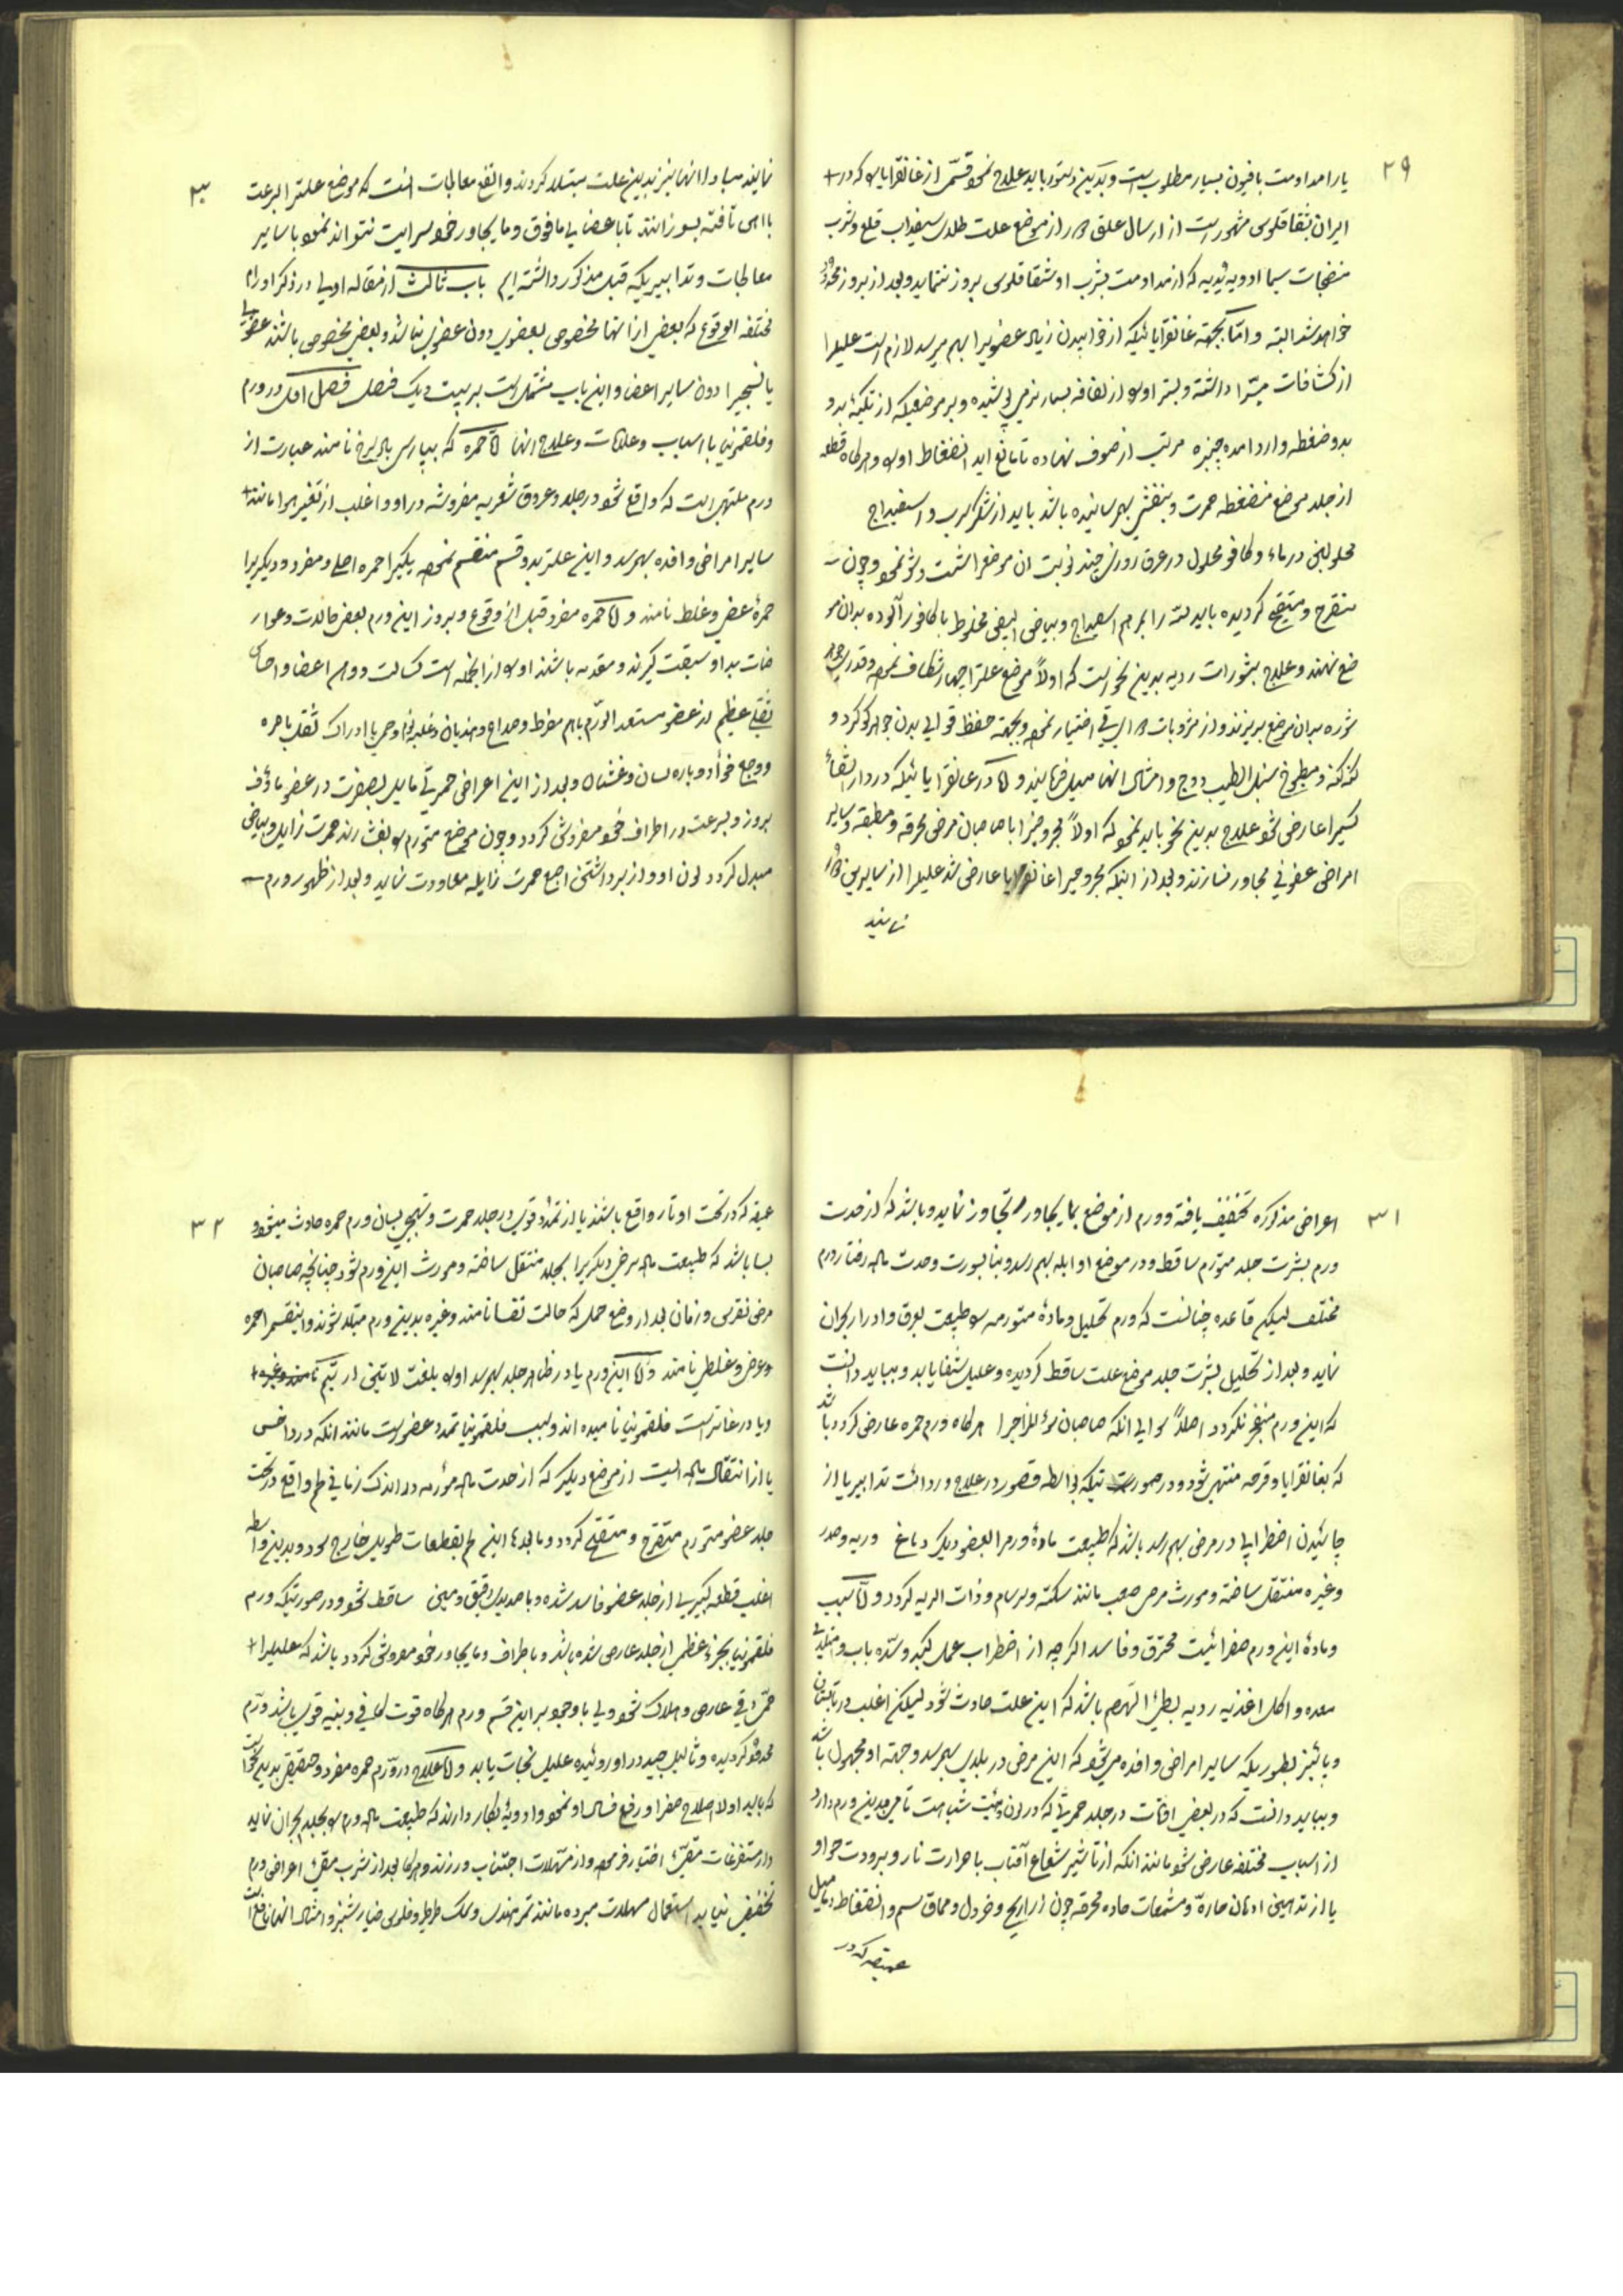 ۲۹
یا را مداومت بافیون بسیار مطلوب است و بدین دستور باید علاج نمود قسمی از غانقرایا که در
ایران بشقاقلوس مشهور است از ارسال علق در از موضع علت طلای سفیداب قلع و شرب
منضجات سیما ادویه ثدییه که از مداومت بشرب او شقاقلوس بروز ننماید و بعد از بروز
خواهد شد البته و اما بجهة غانقرایائیکه از خوابیدن زیاد عضویرا بهم میرسد لازم است علیلرا
از کثافات مبرا داشته و بستر او از لفافه بسیار نرمی پوشیده و بر موضعیکه از تکیه بدو
بدو ضغطه وارد آمده چنبره مرتب از صوف نهاده تا مانع آید انضغاط او و هرگاه قطعه
از جلد موضع منضغطه حمرت و بنفشی بهمرسانیده باشد باید از شکر سرب و اسفیداج
محلول در ماء و کافور محلول در عرق روزی چند نوبت آن موضع را شست و شو نمود و چون
متقرح و متقیح گردیده باید لته را بمرهم اسفیداج و بیاض البیض مخلوط با کافور آلوده بدان مو
ضع نهند و علاج بثورات ردیه بدین نحو است که اولا موضع علترا چهار شکاف نموده و قدری
شوره بدان موضع بریزند و از مشروبات اختیار نموده و بجهة حفظ قوای بدن جوهر گوگرد و
کنه کنه و مطبوخ سنبل الطیب و وج و امثال آنها میل فرمایند و اما در غانقرایائیکه در دار الشفاء
کسیرا عارض شود علاج بدین نحو باید نمود که اولا مجروحین را با صاحبان مرض محرقه و مطبقه و سایر
امراض عفونی مجاور نسازند و بعد از اینکه مجروحیرا غانقرایا عارض شد علیلرا از سایرین
نمایند
۳۰
نمایند مبادا آنها نیز بدین علت مبتلا گردند و انفع معالجات آنست که موضع علترا بسرعت
با آهن تافته بسوزانند تا باعضای مافوق و مایجاور خود سرایت نتواند نمود با سایر
معالجات و تدابیریکه قبل مذکور داشته ایم باب ثالث از مقاله اولی در ذکر اورام
مختلفه الوقوع که بعض از آنها مخصوص بعضوی دون عضوی نباشد و بعض مخصوص باشند عضویرا
یا نسجیرا دون سایر اعضا و این باب مشتمل است بر بیست و یک فصل فصل اول در ورم
و فلغمونی با اسباب و علامات و علاج آنها اما حمره که بپارسی باد سرخ نامند عبارت از
ورم ملتهبی است که واقع شود در جلد و عروق شعریه مفروشه در او و اغلب از تغییر هوا مانند
سایر امراض وافده بهمرسد و این علت بدو قسم منقسم نموده یکیرا حمره اصلی و مفرد و دیگریرا
حمره عرضی و غلط نامند و اما حمره مفرد قبل از وقوع و بروز این ورم بعض حالات و عوار
ضات بدو سبقت گیرند و مقدمه باشند او از آنجمله است کسالت و وهن اعضا و احساس
ثقلی عظیم در عضو مستعد الورم با هم مفرط و صداع و هذیان و غلبه خواب یا ادراک ثقل باصره
و وجع فؤاد و باره لسان و غشیان و بعد از این اعراض حمرتی مایل بصفرت در عضو ماؤف
بروز و بسرعت در اطراف خود مفروش گردد و چون موضع متورم بفشرند حمرت زایل و بیاض
مبدل گردد لون او و از برداشتن اصبع حمرت زایله معاودت نماید و بعد از ظهور ورم
۳۱
اعراض مذکوره تخفیف یافته و ورم از موضع بمایجاور تجاوز نماید و باشد که از حدت
ورم بشرت جلد متورم ساقط و در موضع او ابله بهم رسد و بنا بسورت و حدت ماده رفتار ورم
مختلف لیکن قاعده چنانست که ورم تحلیل و ماده متورمه طبیعت بعرق و ادرار بحران
نماید و بعد از تحلیل بشرت جلد موضع علت ساقط گردیده و علیل شفا یابد و بباید دانست
که این ورم منفجر نگردد اصلا سوای آنکه صاحبان سوء المزاجرا هرگاه ورم حمره عارض گردد باشد
که بغانقرایا و قرحه منتهی شود و در صورتیکه بواسطه قصور در علاج و ردائت تدابیر یا از
چائیدن اضطرابی در مرض بهم رسد باشد که طبیعت ماده ورم را بعضو دیگر دماغ و ریه و صدر
و غیره منتقل ساخته و مورث مرض صعب مانند سکته و سرسام و ذات الریه گردد و اما سبب
و ماده این ورم صفرائیت محترق و فاسد اگرچه از اضطراب عمل کبد و سده باب و امتلای
معده و اکل اغذیه ردیه بطیء الهضم باشد که این علت حادث شود لیکن اغلب در تابستان
و پائیز بطوریکه سایر امراض وافده میشود که این مرض در بلدی بهمرسد و جهة او مجهول باشد
و بباید دانست که در بعض اوقات در جلد حمرتی که در لون و هیئت شباهت تامی بدین ورم دارد
از اسباب مختلفه عارض شود مانند آنکه از تاثیر شعاع آفتاب با حرارت نار و برودت هوا و
یا از تدهین ادهان حاره و مشمعات حاده محرقه چون ذراریح و خردل و سم و انضغاط دمامیل
عمیقه که در
۳۲
عمیقه که در تحت اوتار واقع باشند یا از تمدد قوی در جلد حمرت و تهیجی بسان ورم حمره حادث میشود و
بسا باشد که طبیعت ماده مرض دیگریرا بجلد منتقل ساخته و مورث این ورم شود چنانچه صاحبان
مرض نقرس و زنان بعد از وضع حمل که حالت نفسا نامند و غیره بدین ورم مبتلا شوند و اینقسم را حمره
و عرض و غلطی نامند و اما این ورم یا در ظاهر جلد بهمرسد او بلغت لاتینی ار
و یا در غائر است فلغمونی نامیده اند و سبب فلغمونیا تمدد عضو است مانند آنکه در داخس
یا از انتقال ماده ایست از موضع دیگر که از حدت ماده مؤرمه در اندک زمانی لحم واقع در تحت
جلد عضو متورم متقرح و متقیح گردد و ما بعدها این لحم بقطعات طویل خارج شود و بدین واسطه
اغلب قطعه کبیری از جلد عضو فاسد شده و با صدیدی رقیق و سمین ساقط شود و در صورتیکه ورم
فلغمونی بجزء عظمی از جلد عارض شده باشد و باطراف و مایجاور خود مفروش گردد باشد که علیلرا
حمی دقی عارض و هلاک شود ولی با وجود بر این قسم ورم هرگاه قوت کافی و بنیه قوی باشد ورم
محدود گردیده و ثالیل جید در او روئیده علیل نجات یابد و اما علاج در ورم حمره مفرد و حقیقی بدین نحو است
که باید اولا اصلاح صفرا و رفع فساد او نمود و ادویه بکار دارند که طبیعت ماده ورم بجلد بحران نماید
و از مستفرغات مقیء اختیار فرموده و از مسهلات اجتناب ورزند و هرگاه بعد از شرب مقیء اعراض ورم
تخفیف نیابد استعمال مسهلات مبرده مانند تمر هندی و نمک طرطر و فلوس خیار شنبر و امثال آنها نافع است